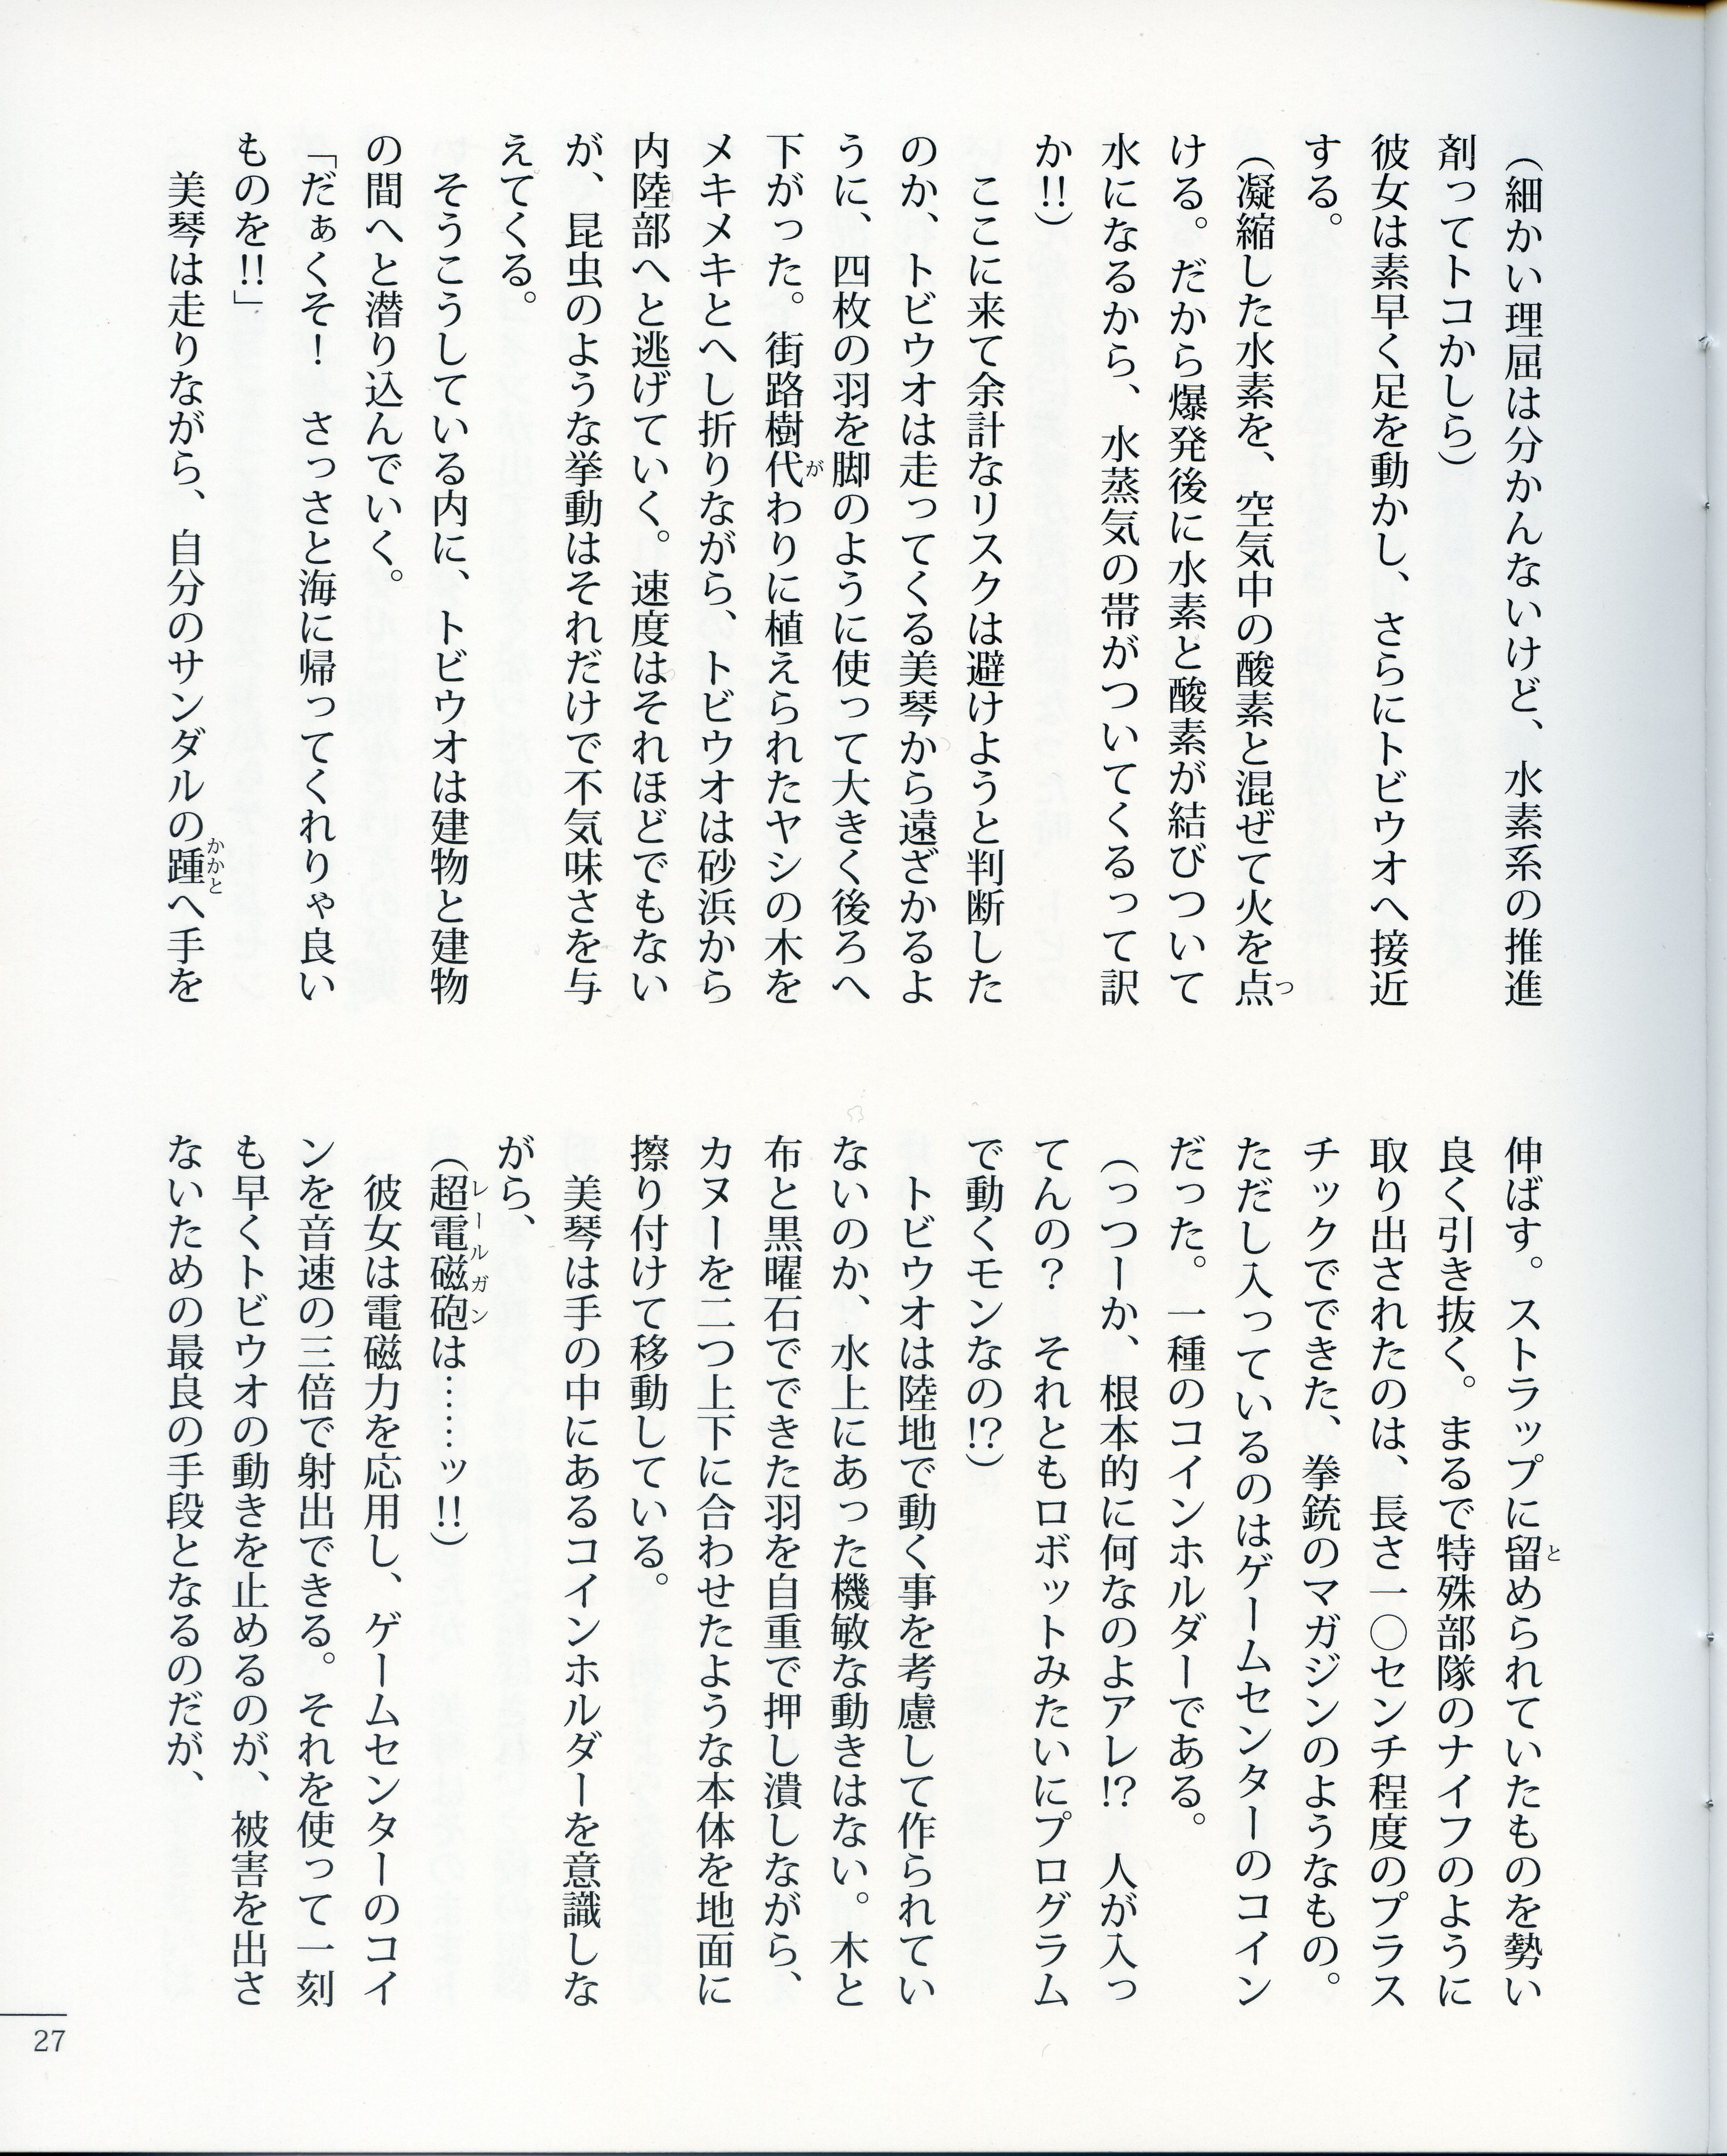 （細かい理屈は分かんないけど、水素系の推進
剤ってトコかしら）
彼女は素早く足を動かし、さらにトビウオへ接近
する。
（凝縮した水素を、空気中の酸素と混ぜて火を点
ける。だから爆発後に水素と酸素が結びついて
水になるから、水蒸気の帯がついてくるって訳
か!!）
　ここに来て余計なリスクは避けようと判断した
のか、トビウオは走ってくる美琴から遠ざかるよ
うに、四枚の羽を脚のように使って大きく後ろへ
下がった。街路樹代わりに植えられたヤシの木を
メキメキとへし折りながら、トビウオは砂浜から
内陸部へと逃げていく。速度はそれほどでもない
が、昆虫のような挙動はそれだけで不気味さを与
えてくる。
　そうこうしている内に、トビウオは建物と建物
の間へと潜り込んでいく。
「だぁくそ！　さっさと海に帰ってくれりゃ良い
ものを!!」
　美琴は走りながら、自分のサンダルの踵へ手を
伸ばす。ストラップに留められていたものを勢い
良く引き抜く。まるで特殊部隊のナイフのように
取り出されたのは、長さ一〇センチ程度のプラス
チックでできた、拳銃のマガジンのようなもの。
ただし入っているのはゲームセンターのコイン
だった。一種のコインホルダーである。
（っつーか、根本的に何なのよアレ!?　人が入っ
てんの？　それともロボットみたいにプログラム
で動くモンなの!?）
　トビウオは陸地で動く事を考慮して作られてい
ないのか、水上にあった機敏な動きはない。木と
布と黒曜石でできた羽を自重で押し潰しながら、
カヌーを二つ上下に合わせたような本体を地面に
擦り付けて移動している。
　美琴は手の中にあるコインホルダーを意識しな
がら、
（超電磁砲は……ッ!!）
　彼女は電磁力を応用し、ゲームセンターのコイ
ンを音速の三倍で射出できる。それを使って一刻
も早くトビウオの動きを止めるのが、被害を出さ
ないための最良の手段となるのだが、
27